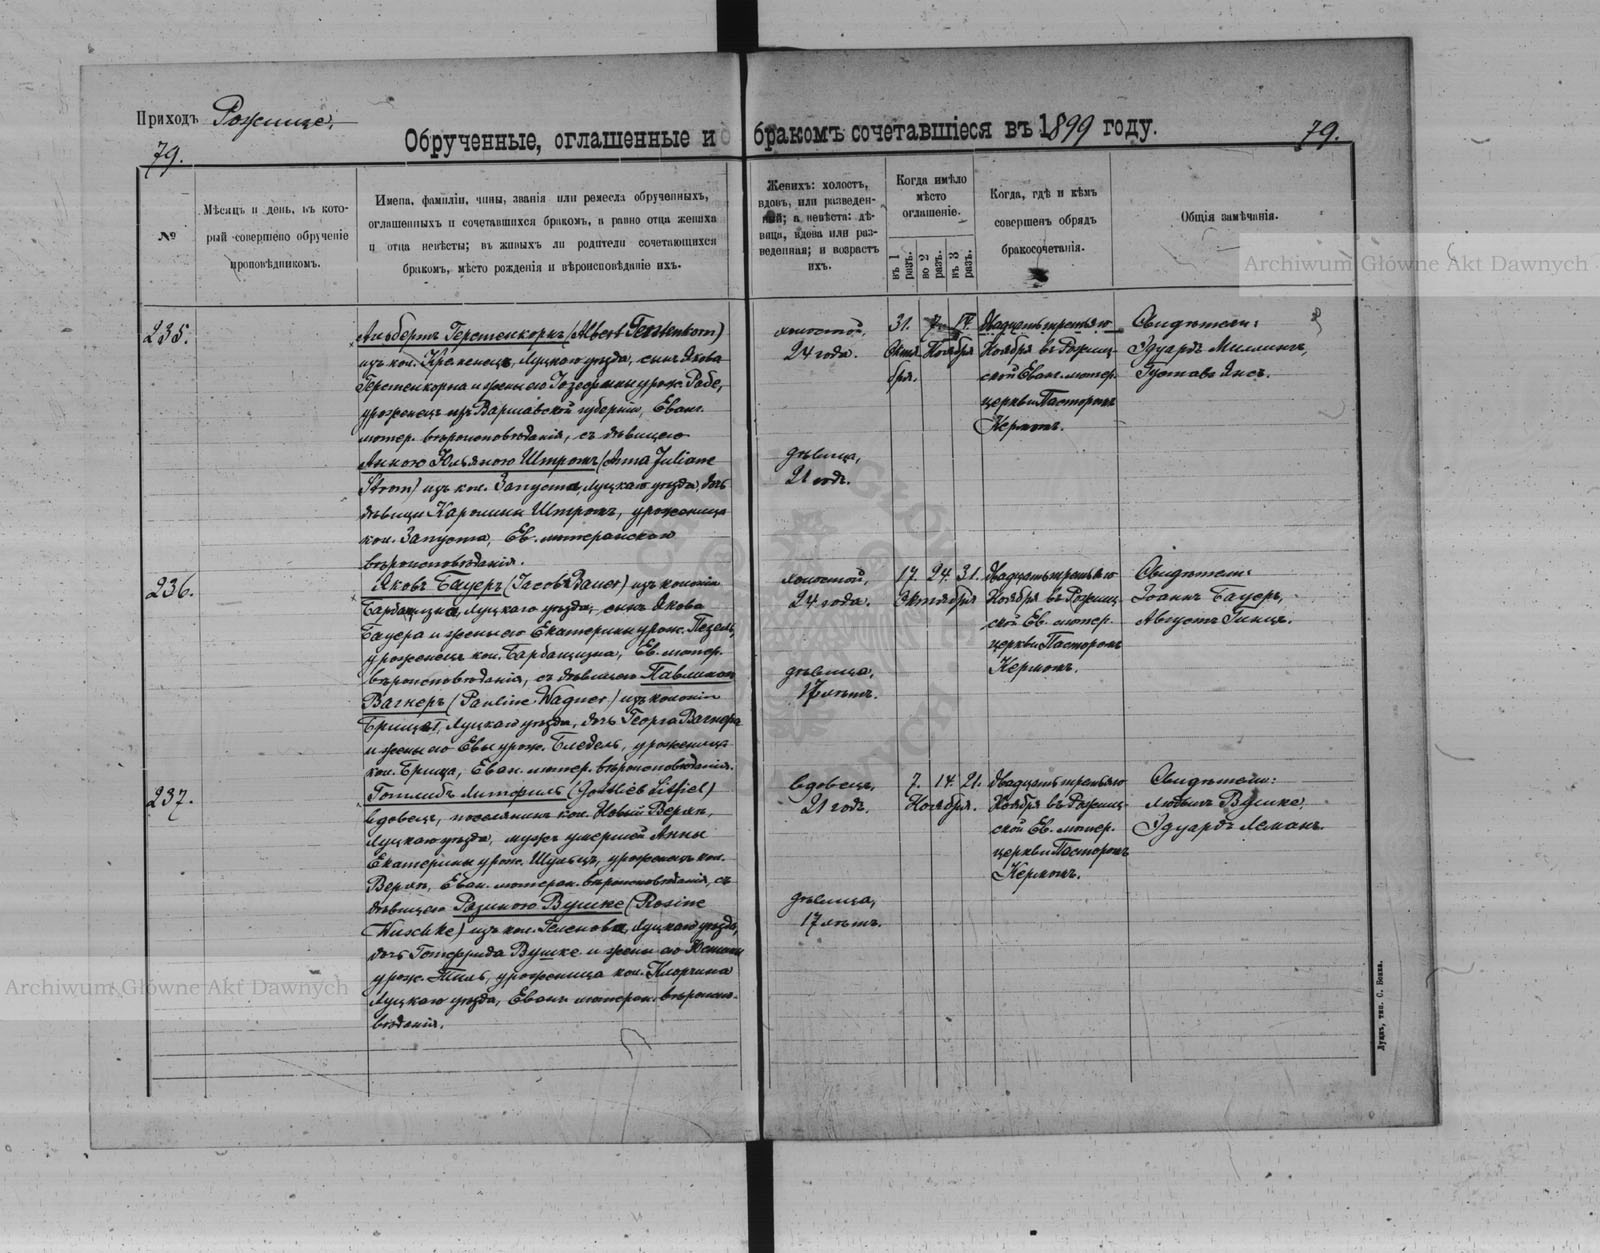 Приходъ Рожище.
Обрученные, оглашенные и бракомъ сочетавшіеся въ 1899 году.
79.
79.
№
Мѣсяцъ и день, въ кото-
рый совершено обрученіе
проповѣдникомъ.
Имена, фамиліи, чины, званія или ремесла обрученныхъ,
оглашенныхъ и сочетавшихся бракомъ, а равно отца жениха
и отца невѣсты; въ живыхъ ли родители сочетающихся
бракомъ, мѣсто рожденія и вѣроисповѣданіе ихъ.
Женихъ: холостъ,
вдовъ, или разведен-
ный; а невѣста: дѣ-
вица, вдова или раз-
веденная; и возрастъ
ихъ.
Когда имѣло
мѣсто
оглашеніе.
въ 1 разъ.
во 2 разъ.
въ 3 разъ.
Когда, гдѣ и кѣмъ
совершенъ обрядъ
бракосочетанія.
Общія замѣчанія.
235.
Альбертъ Герстенкорнъ (Albert Gerstenkorn)
изъ кол. Кременецъ, Луцкаго уѣзда, сынъ Якова
Герстенкорна и жены его Іозефины урож. Рабе,
уроженецъ изъ Варшавской губерніи, Еванг.
лютер. вѣроисповѣданія, съ дѣвицею
Анною Юльяною Штромъ (Anna Juliane
Strom) изъ кол. Запуста, Луцкаго уѣзда, дочь
дѣвицы Каролины Штромъ, уроженица
кол. Запуста, Ев. лютеранскаго
вѣроисповѣданія.
холостой,
24 года.
дѣвица,
21 годъ.
31. 7. 14.
Октя- Ноября
бря.
Двадцать третьяго
Ноября въ Рожищ-
ской Еванг. лютер.
церкви Пасторомъ
Кермомъ.
Свидѣтели:
Эдуардъ Миллингъ,
Густавъ Янсъ.
236.
Яковъ Бауеръ (Jacob Bauer) изъ колоніи
Барбащизна, Луцкаго уѣзда, сынъ Якова
Бауера и жены его Екатерины урож. Пезель,
уроженецъ кол. Барбащизна, Ев. лютер.
вѣроисповѣданія, съ дѣвицею Павлиною
Вагнеръ (Pauline Wagner) изъ колоніи
Брищѣ, Луцкаго уѣзда, дочь Георга Вагнера
и жены его Евы урож. Бледель, уроженица
кол. Брища, Еван. лютер. вѣроисповѣданія.
холостой,
24 года.
дѣвица,
17 лѣтъ.
17. 24. 31.
Октября
Двадцать третьяго
Ноября въ Рожищ-
ской Ев. лютер.
церкви Пасторомъ
Кермомъ.
Свидѣтели:
Іоаннъ Бауеръ,
Августъ Гинцъ.
237.
Готлибъ Литфиль (Gottlieb Litfiel)
вдовецъ, поселянинъ кол. Новый Верап,
Луцкаго уѣзда, мужъ умершей Анны
Екатерины урож. Шульцъ, уроженецъ кол.
Верап, Еван. лютеран. вѣроисповѣданія, съ
дѣвицею Розиною Вушке (Rosine
Wuschke) изъ кол. Геленовка, Луцкаго уѣзда,
дочь Готфрида Вушке и жены его Юстины
урож. Тиль, уроженица кол. Клорчина
Луцкаго уѣзда, Еванг. лютеран. вѣроиспо-
вѣданія.
вдовецъ,
21 годъ.
дѣвица,
17 лѣтъ.
7. 14. 21.
Ноября.
Двадцать третьяго
Ноября въ Рожищ-
ской Ев. лютер.
церкви Пасторомъ
Кермомъ.
Свидѣтели:
Людвигъ Вушке,
Эдуардъ Леманъ.
Луцкъ, тип. С. Бокка.
Archiwum Główne Akt Dawnych
Archiwum Główne Akt Dawnych